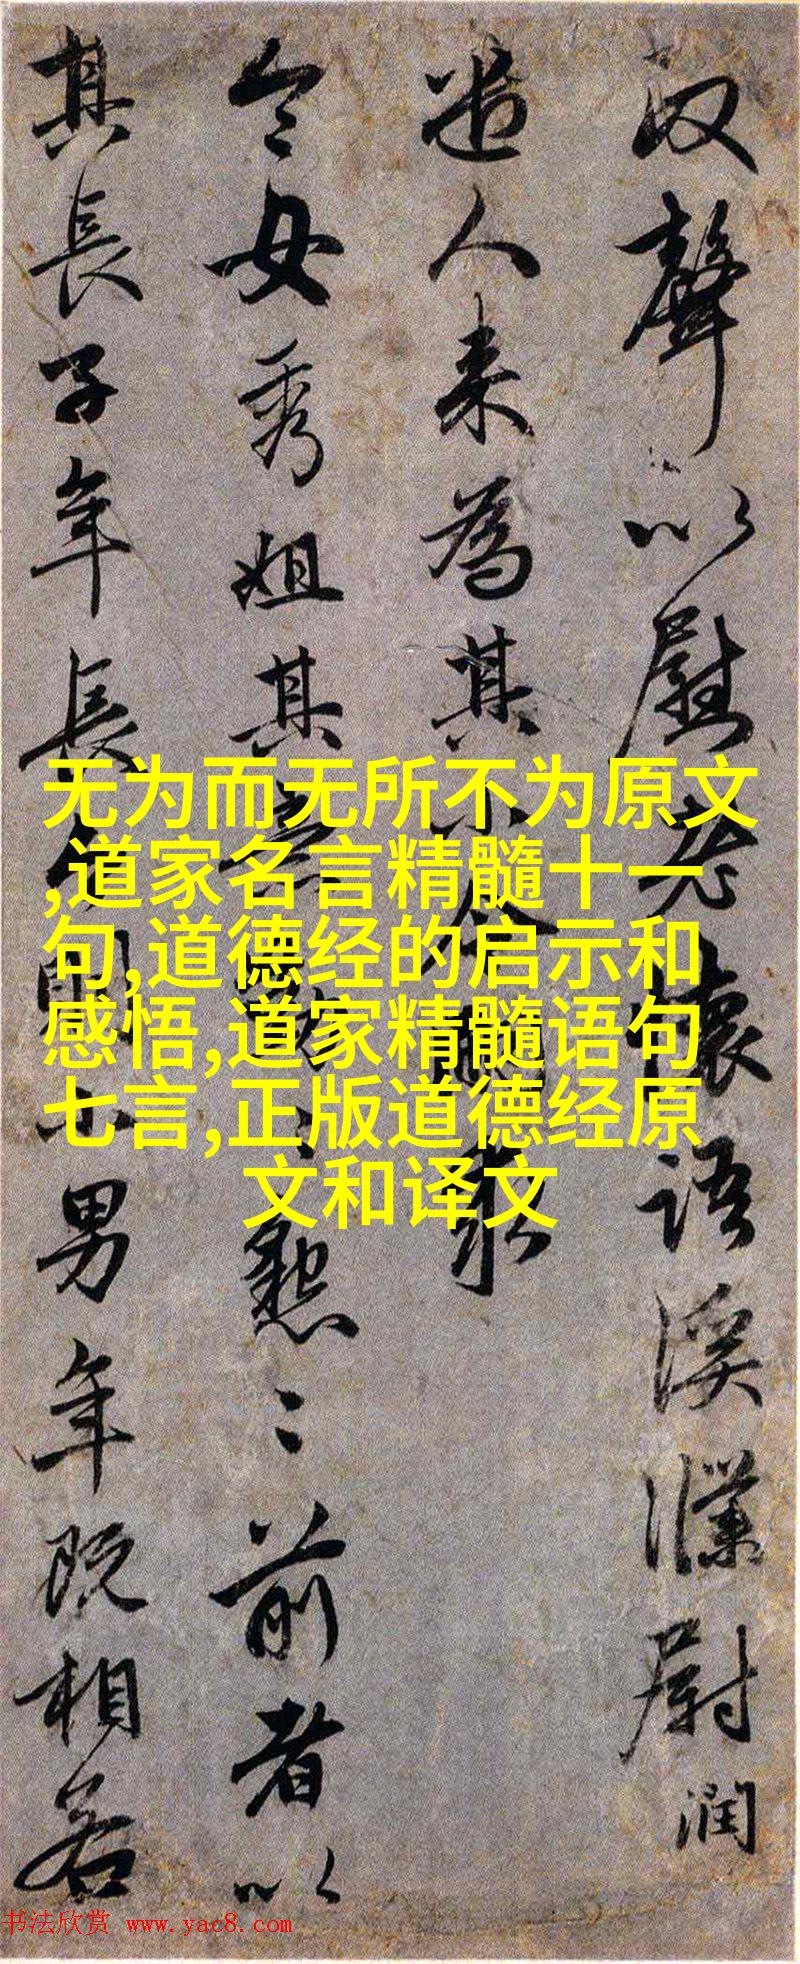 聲以慰老懷語溪濮尉潤
遣人来為其小令求
令母秀姐其意懇〻前者以
其長子年長則小男年既相若
无为而无所不为原文
,道家名言精髓十一
句,道德经的启示和
感悟,道家精髓语句
七言,正版道德经原
文和译文
书法欣赏 www.yac8.com